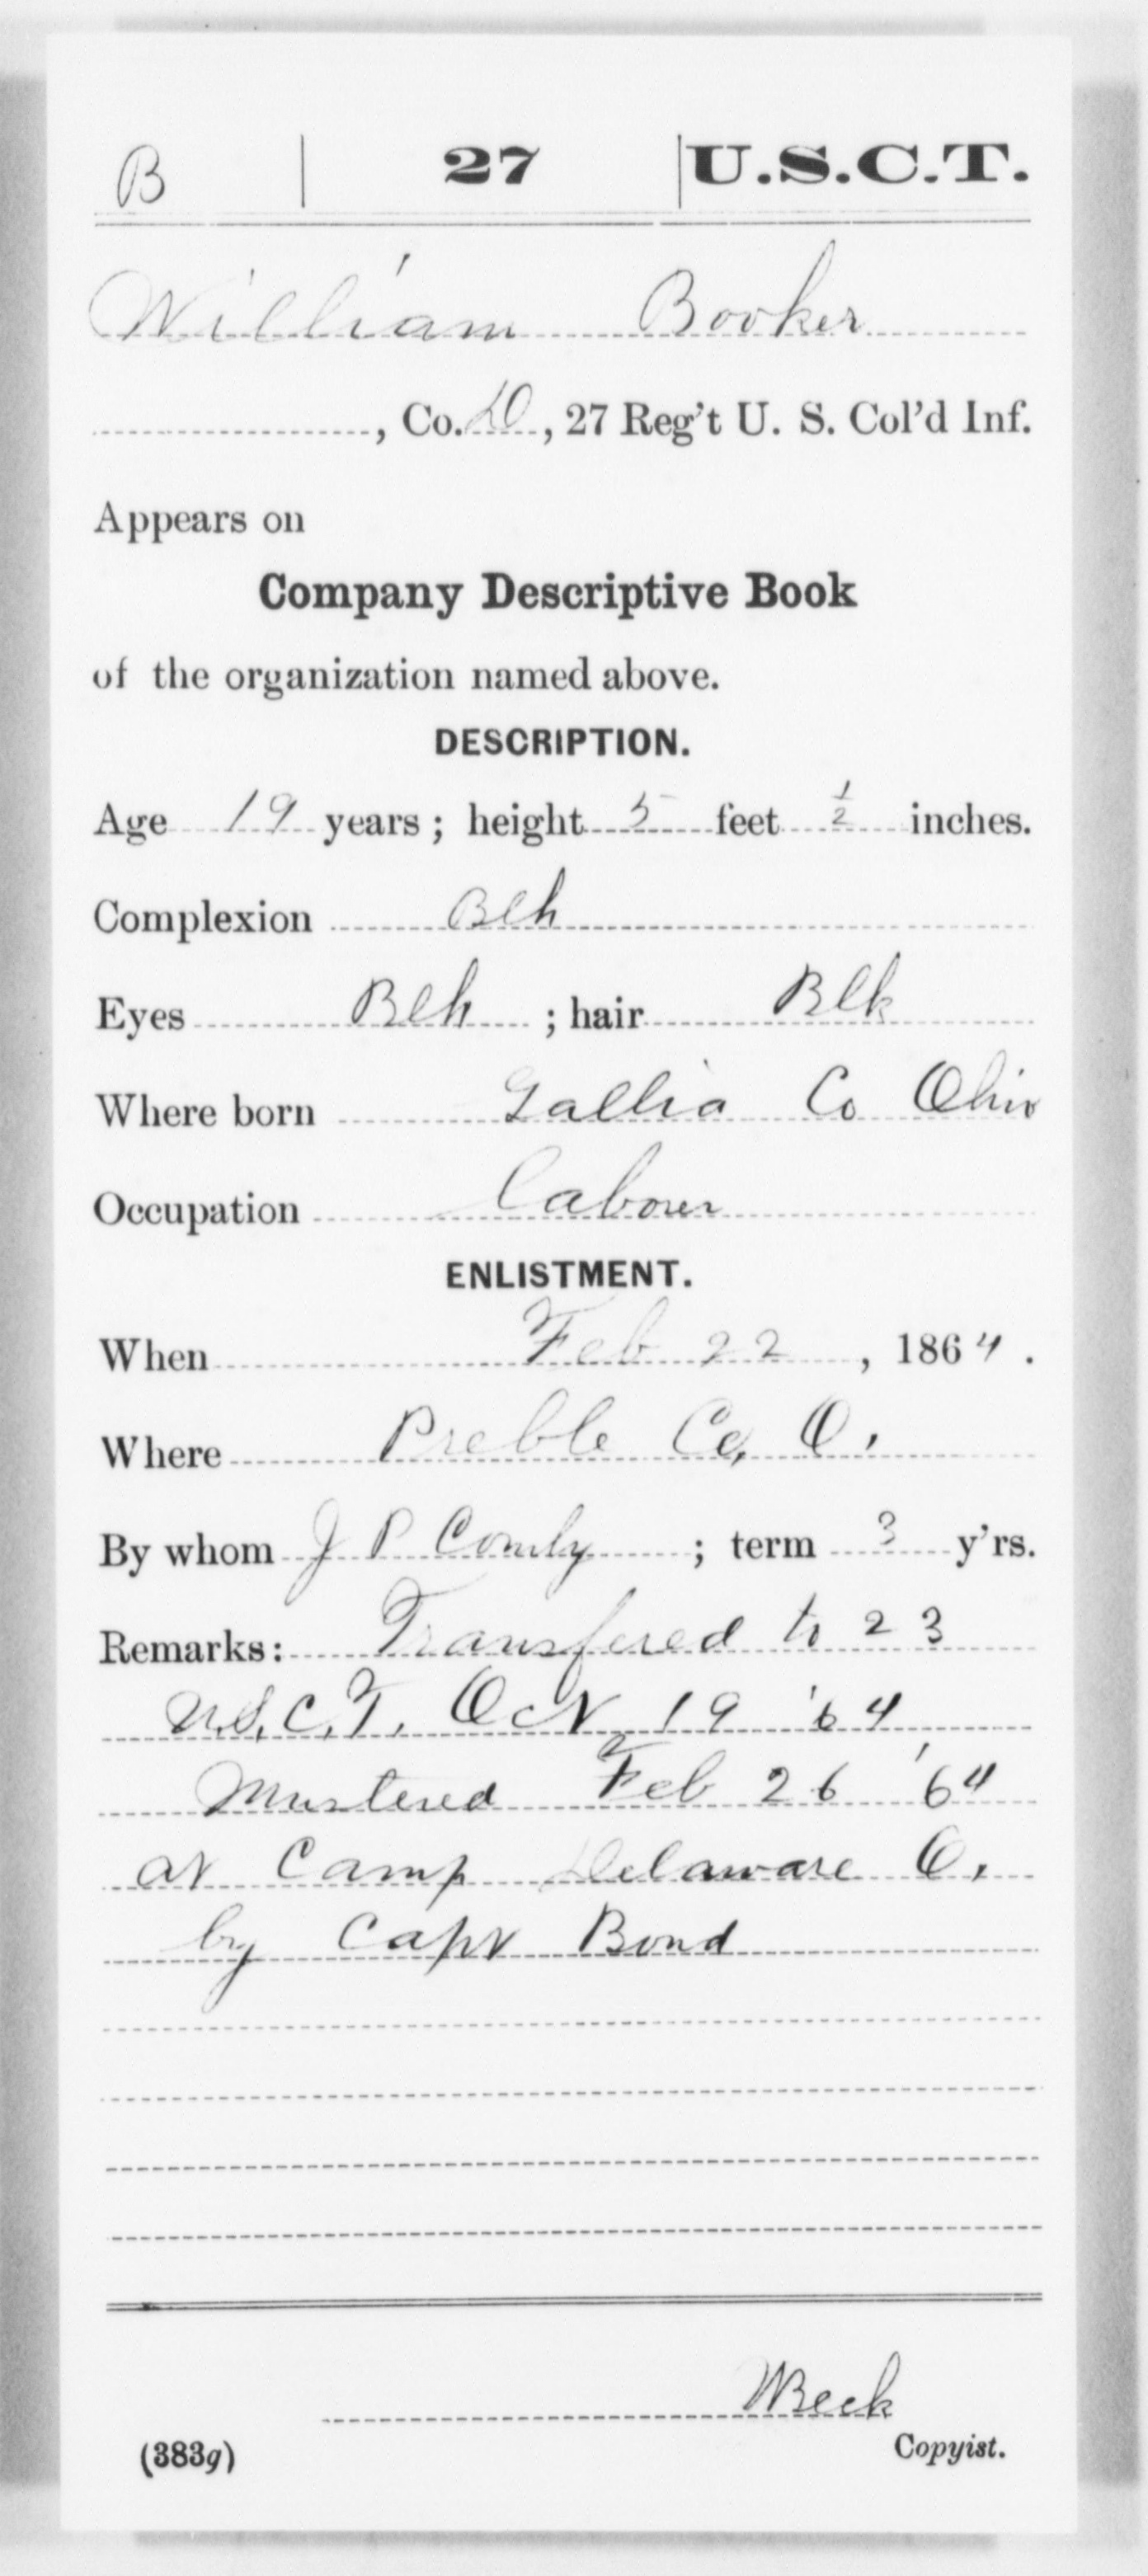 B 27 U.S.C.T.
William Booker
, Co. D, 27 Reg't U. S. Col'd Inf.
Appears on
Company Descriptive Book
of the organization named above.
DESCRIPTION.
Age 19 years; height 5 feet ½ inches.
Complexion Blk
Eyes Blk; hair Blk
Where born Gallia Co Ohio
Occupation Labourer
ENLISTMENT.
When Feb 22, 1864.
Where Preble Co, O.
By whom J P Comly; term 3 y'rs.
Remarks: Transfered to 23
U.S.C.T. Oct 19 '64
Mustered Feb 26 '64
at Camp Delaware O.
by Capt Bond
WBeck
(383g) Copyist.